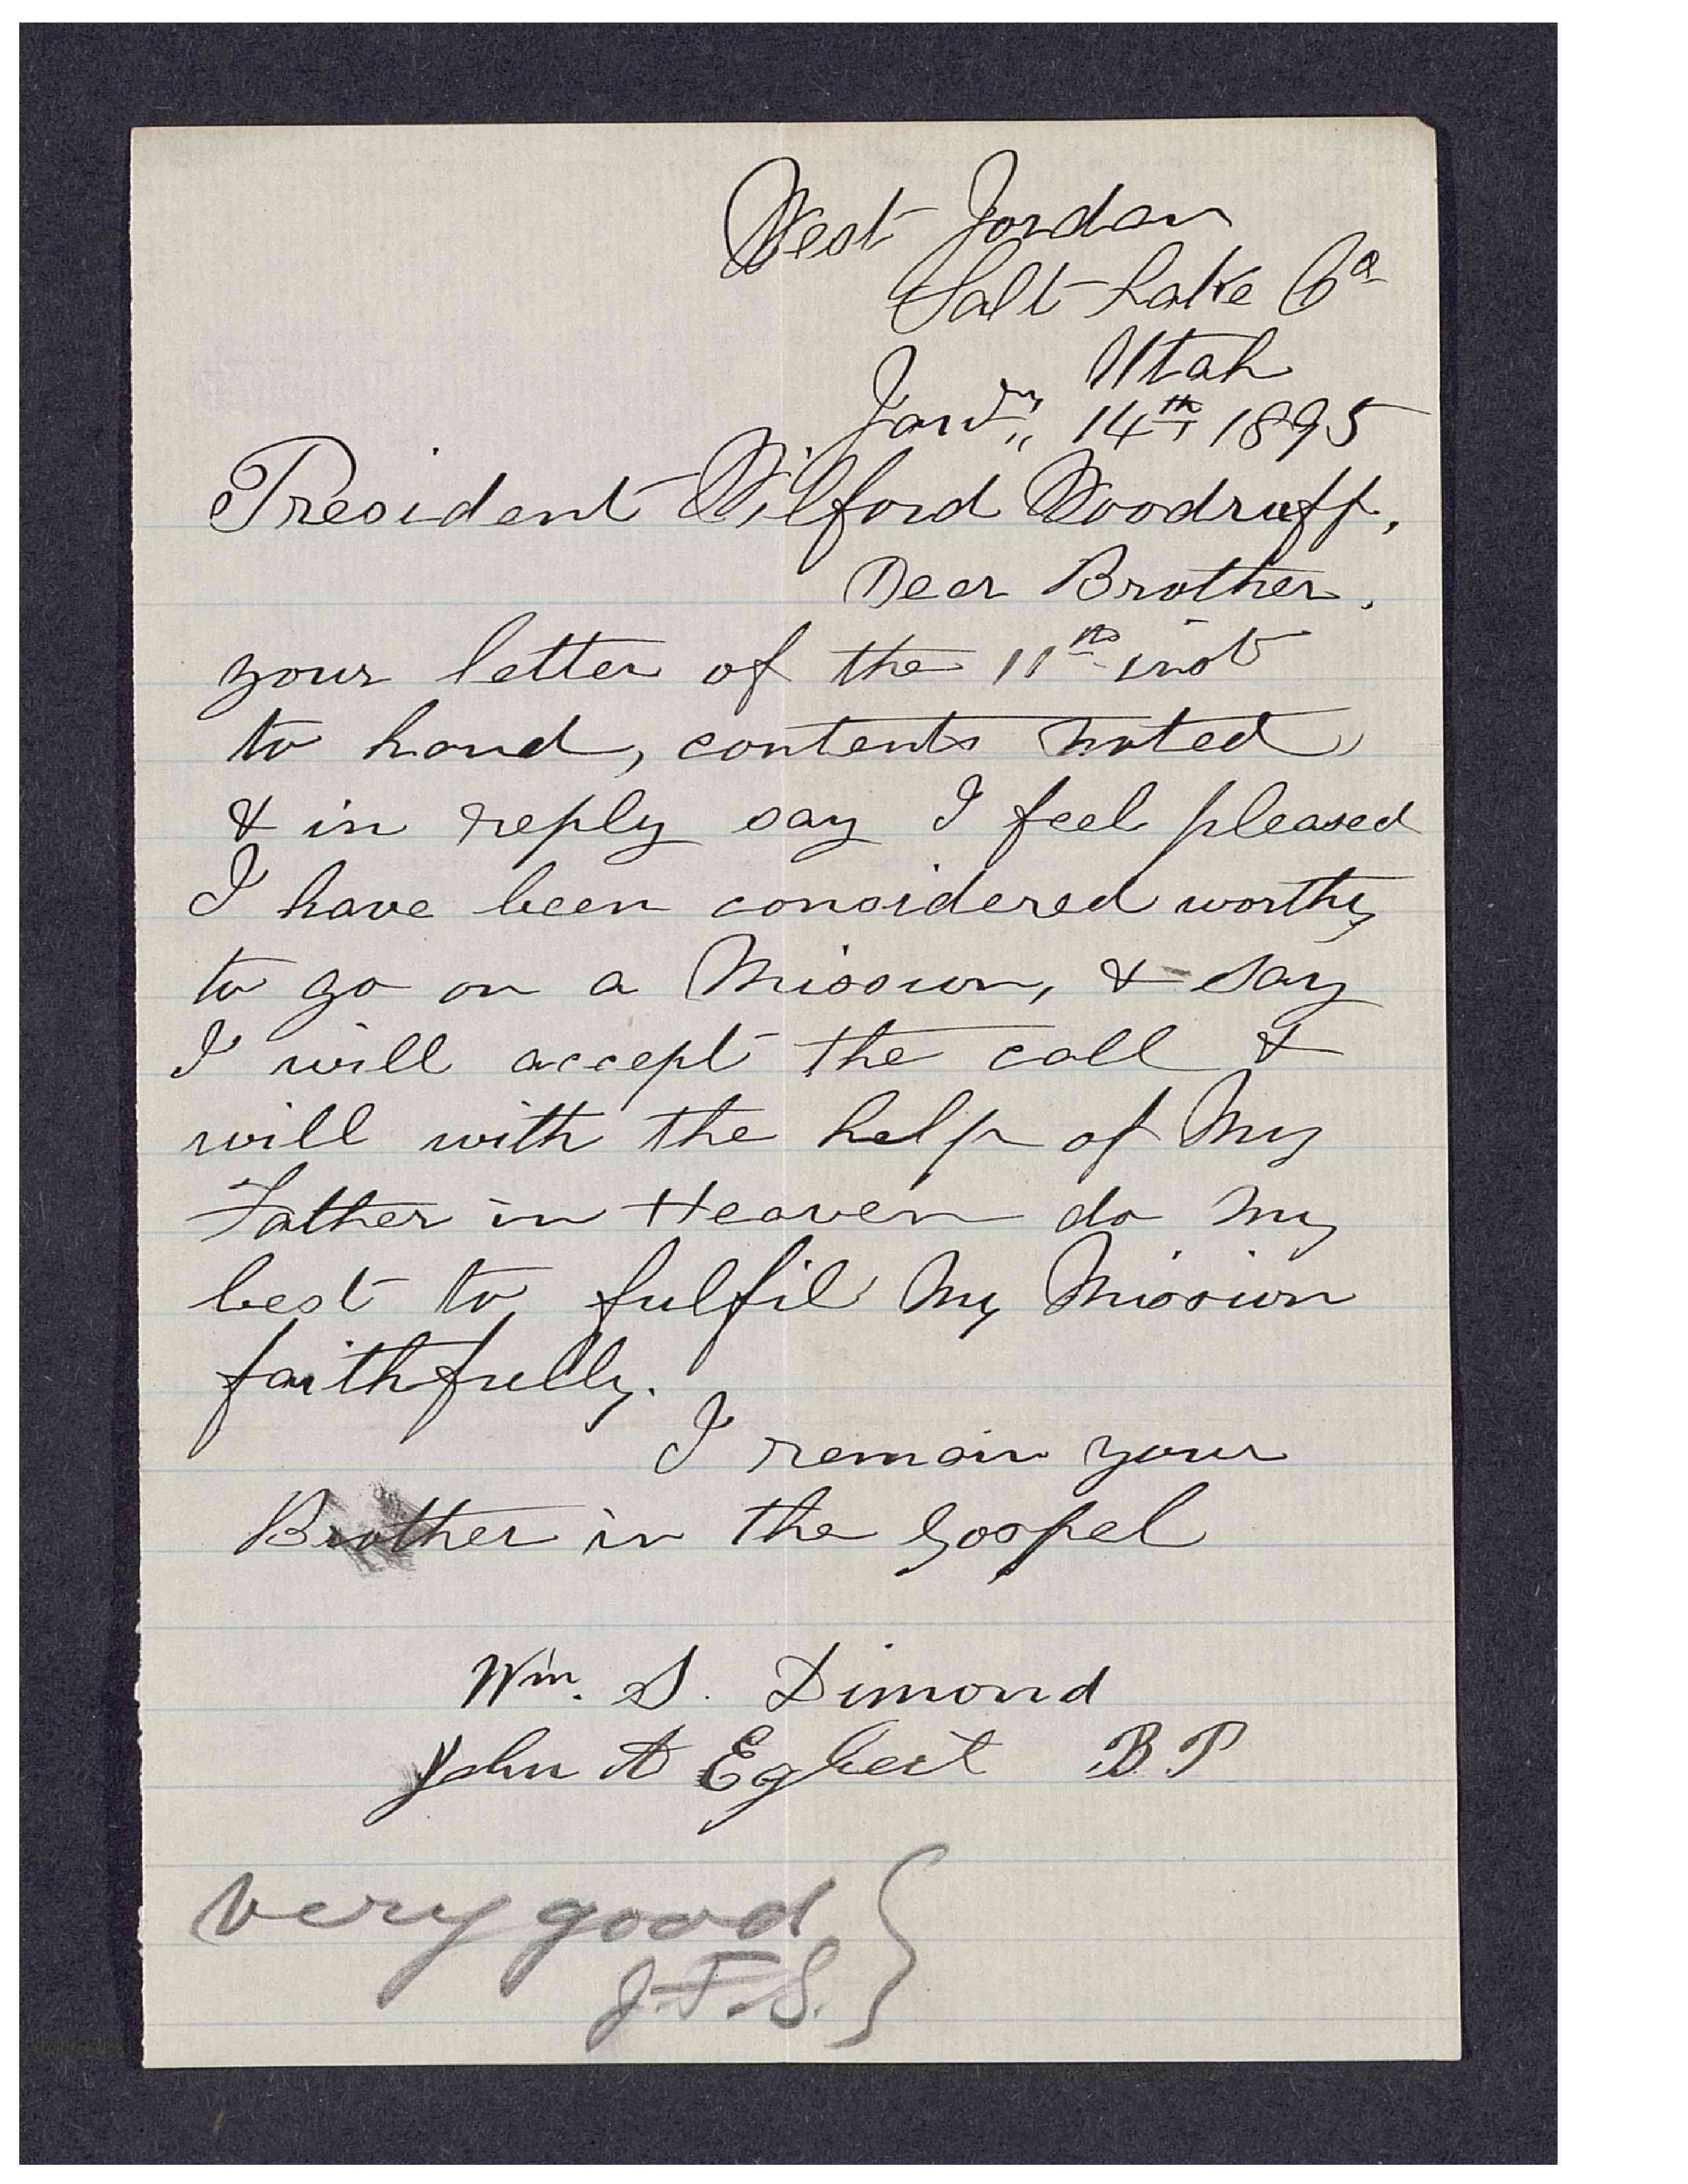 West Jordan
Salt Lake Co
Utah
Jany 14th 1895
President Wilford Woodruff,
Dear Brother,
your letter of the 11th inst
to hand, contents noted
& in reply say I feel pleased
I have been considered worthy
to go on a Mission, & say
I will accept the call &
will with the help of My
Father in Heaven do My
best to fulfil My Mission
faithfully.
I remain your
Brother in the Gospel
Wm. S. Dimond
John A Egbert BP
very good
J.F.S.